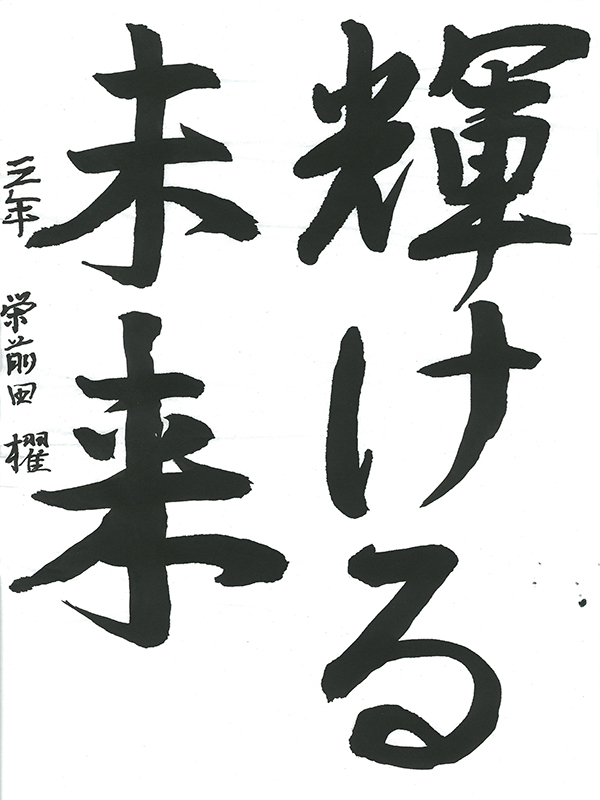 輝ける
未来
三年 栄前田 櫂